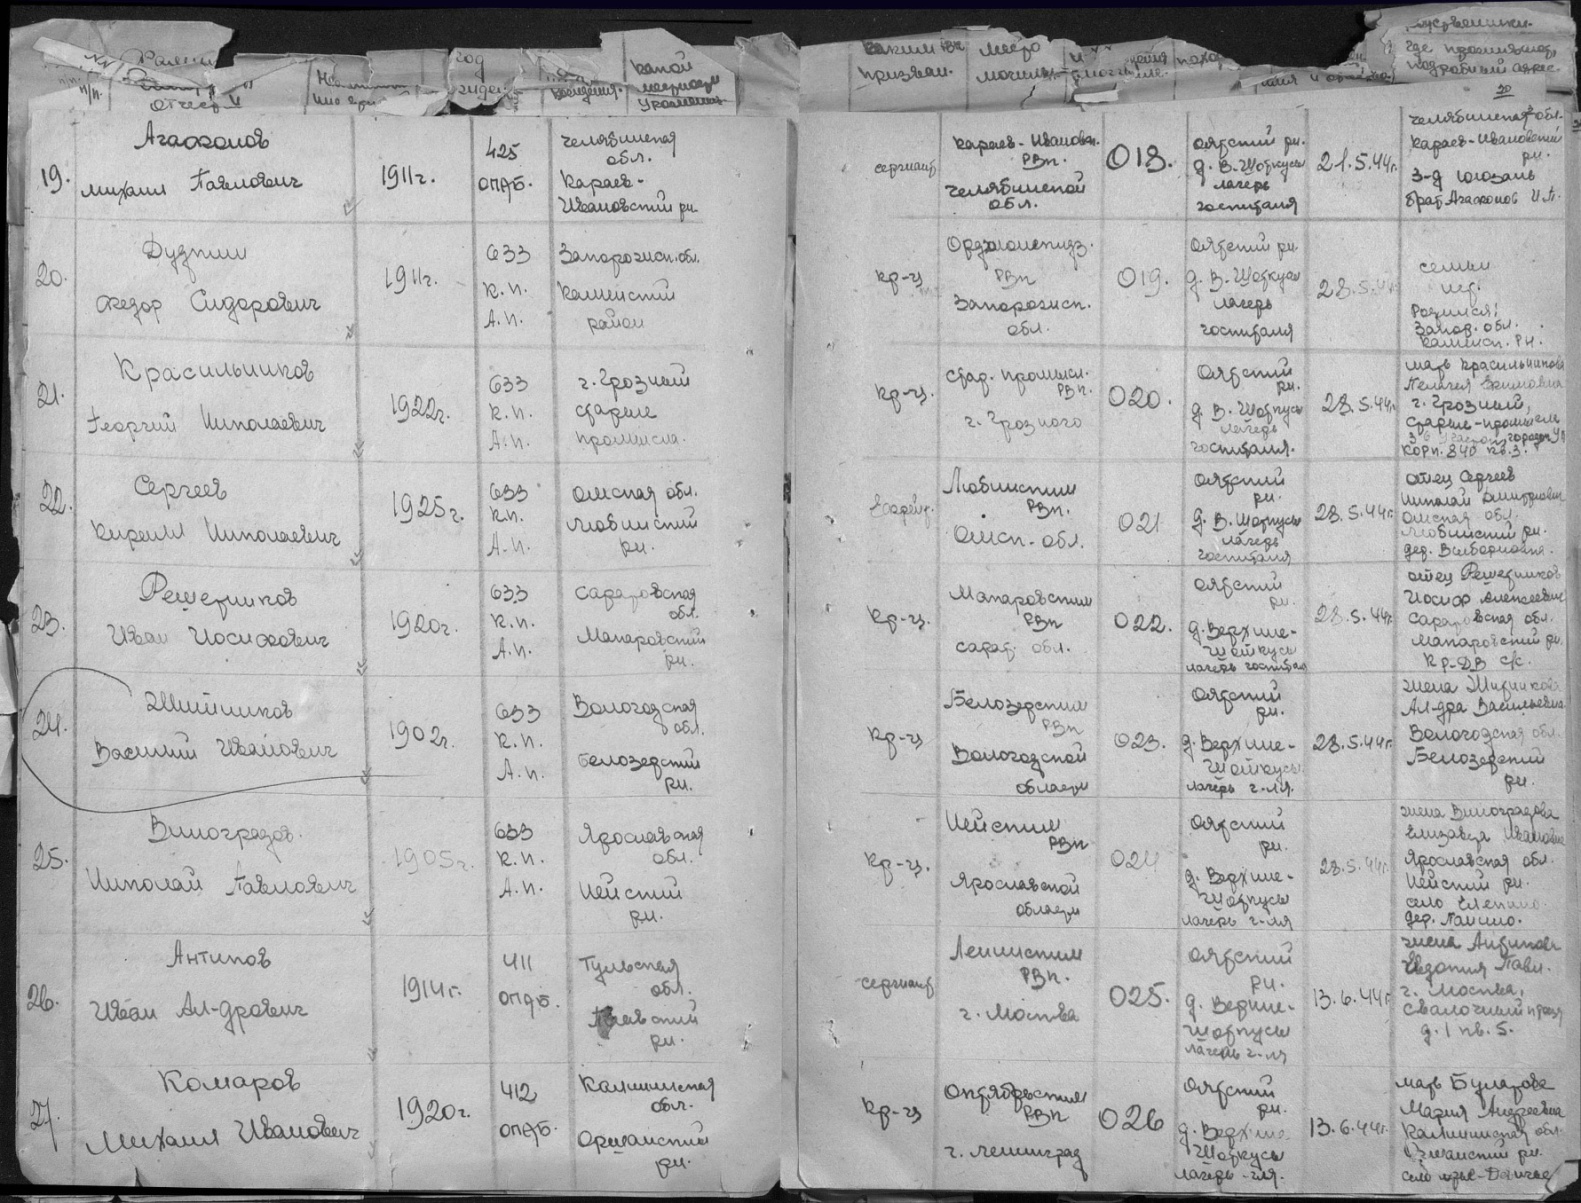 отчество
Каким РВК
призван.
Место
какой
подробный адрес.
20
19.
Агафонов
Михаил Павлович
1911г.
425
ОПАБ.
Челябинская
обл.
Караев-
Ивановский рн
сержант
Караев-Ивановск.
РВК.
Челябинской
обл.
018.
Оятский рн.
д. В-Шоткусы
лагерь
госпиталя
21.5.44г.
Челябинская обл.
Караев-Ивановский
рн.
З-д Юрзань
брат Агафонов И.П.
20.
Дудкин
Федор Сидорович
1911г.
633
К.П.
А.П.
Запорожск. обл.
Каменский
район
кр-ц
Орджоникидз.
РВК
Запорожск.
обл.
019.
Оятский рн.
д. В-Шоткусы
лагерь
госпиталя
28.5.44
семьи
нет.
Родился:
Запор. обл.
Каменск. рн.
21.
Красильников
Георгий Николаевич
1922г.
633
К.П.
А.П.
г. Грозный
старые
промысла.
кр-ц.
Стар. промысл.
РВК.
г. Грозного
020.
Оятский
рн.
д. В. Шоткусы
лагерь
госпиталя.
28.5.44г.
мать Красильникова
Пелагея Ефимовна
г. Грозный,
старые-промысла
корп. 840 кв. 3.
22.
Сергеев
Кирилл Николаевич
1925г.
633
К.П.
А.П.
Омская обл.
Любинский
рн.
Ефрейт.
Любинским
РВК.
Омск. обл.
021
Оятский
рн.
д. В. Шоткусы
лагерь
госпиталя
28.5.44г.
отец Сергеев
Николай Дмитриевич
Омская обл.
Любинский рн.
дер.
23.
Решетников
Иван Иосифович
1920г.
633
К.П.
А.П.
Саратовская
обл.
Макаровский
рн.
кр-ц.
Макаровским
РВК
Сарат. обл.
022.
Оятский
рн.
д. Верхние-
Шоткусы
лагерь госпиталя
28.5.44г.
отец Решетников
Иосиф Алексеевич
Саратовская обл.
Макаровский рн.
с/с.
24.
Василий Иванович
1902г.
633
К.П.
А.П.
Вологодская
обл.
Белозерский
рн.
кр-ц
Белозерским
РВК
Вологодской
области
023.
Оятский
рн.
д. Верхние-
Шоткусы
лагерь г-ля.
28.5.44г.
жена
Ал-дра Васильевна
Вологодская обл.
Белозерский
рн.
25.
Виноградов.
Николай Павлович
1905г.
633
К.П.
А.П.
Ярославская
обл.
Нейский
рн.
кр-ц.
Нейским
РВК
Ярославской
области
024
Оятский
рн.
д. Верхние-
Шоткусы
лагерь г-ля
28.5.44г.
жена Виноградова
Елизавета Ивановна
Ярославская обл.
Нейский рн.
село
дер.
26.
Антипов
Иван Ал-дрович
1914г.
411
ОПАБ.
Тульская
обл.
рн.
сержант
Ленинским
РВК.
г. Москва
025.
Оятский
рн.
д. Верхние-
Шоткусы
лагерь г-ля
13.6.44г.
жена Антипова
Евдокия Павл.
г. Москва,
Свалочный проезд
д. 1 кв. 5.
27.
Комаров
Михаил Иванович
1920г.
412
ОПАБ.
Калининская
обл.
Оршанский
рн.
кр-ц
Октябрьским
РВК
г. Ленинград
026
Оятский
рн.
д. Верхние
Шоткусы
лагерь г-ля.
13.6.44г.
мать
Мария Андреевна
Калининская обл.
Оршанский рн.
село